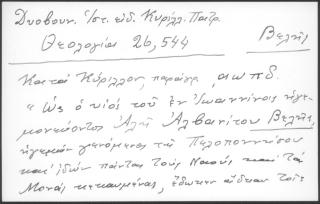 Δυοβουν. Ἱστ. εἰδ. Κυρίλλ. Πατρ.
Θεολογίας 26,544
Βελῆς
Κατὰ Κύριλλον, παραγρ. αωπδ.
"Ὡς ὁ υἱὸς τοῦ ἐν Ἰωαννίνοις ἡγε-
μονεύοντος Ἀλῆ Ἀλβανίτου Βελῆς,
ἡγεμὼν γενόμενος τῆς Πελοποννήσου
καὶ ἰδὼν πάντας τοὺς Ναοὺς καὶ τὰ
Μονὰς κεκαυμένας, ἔδωκεν ἄδειαν τοῖς